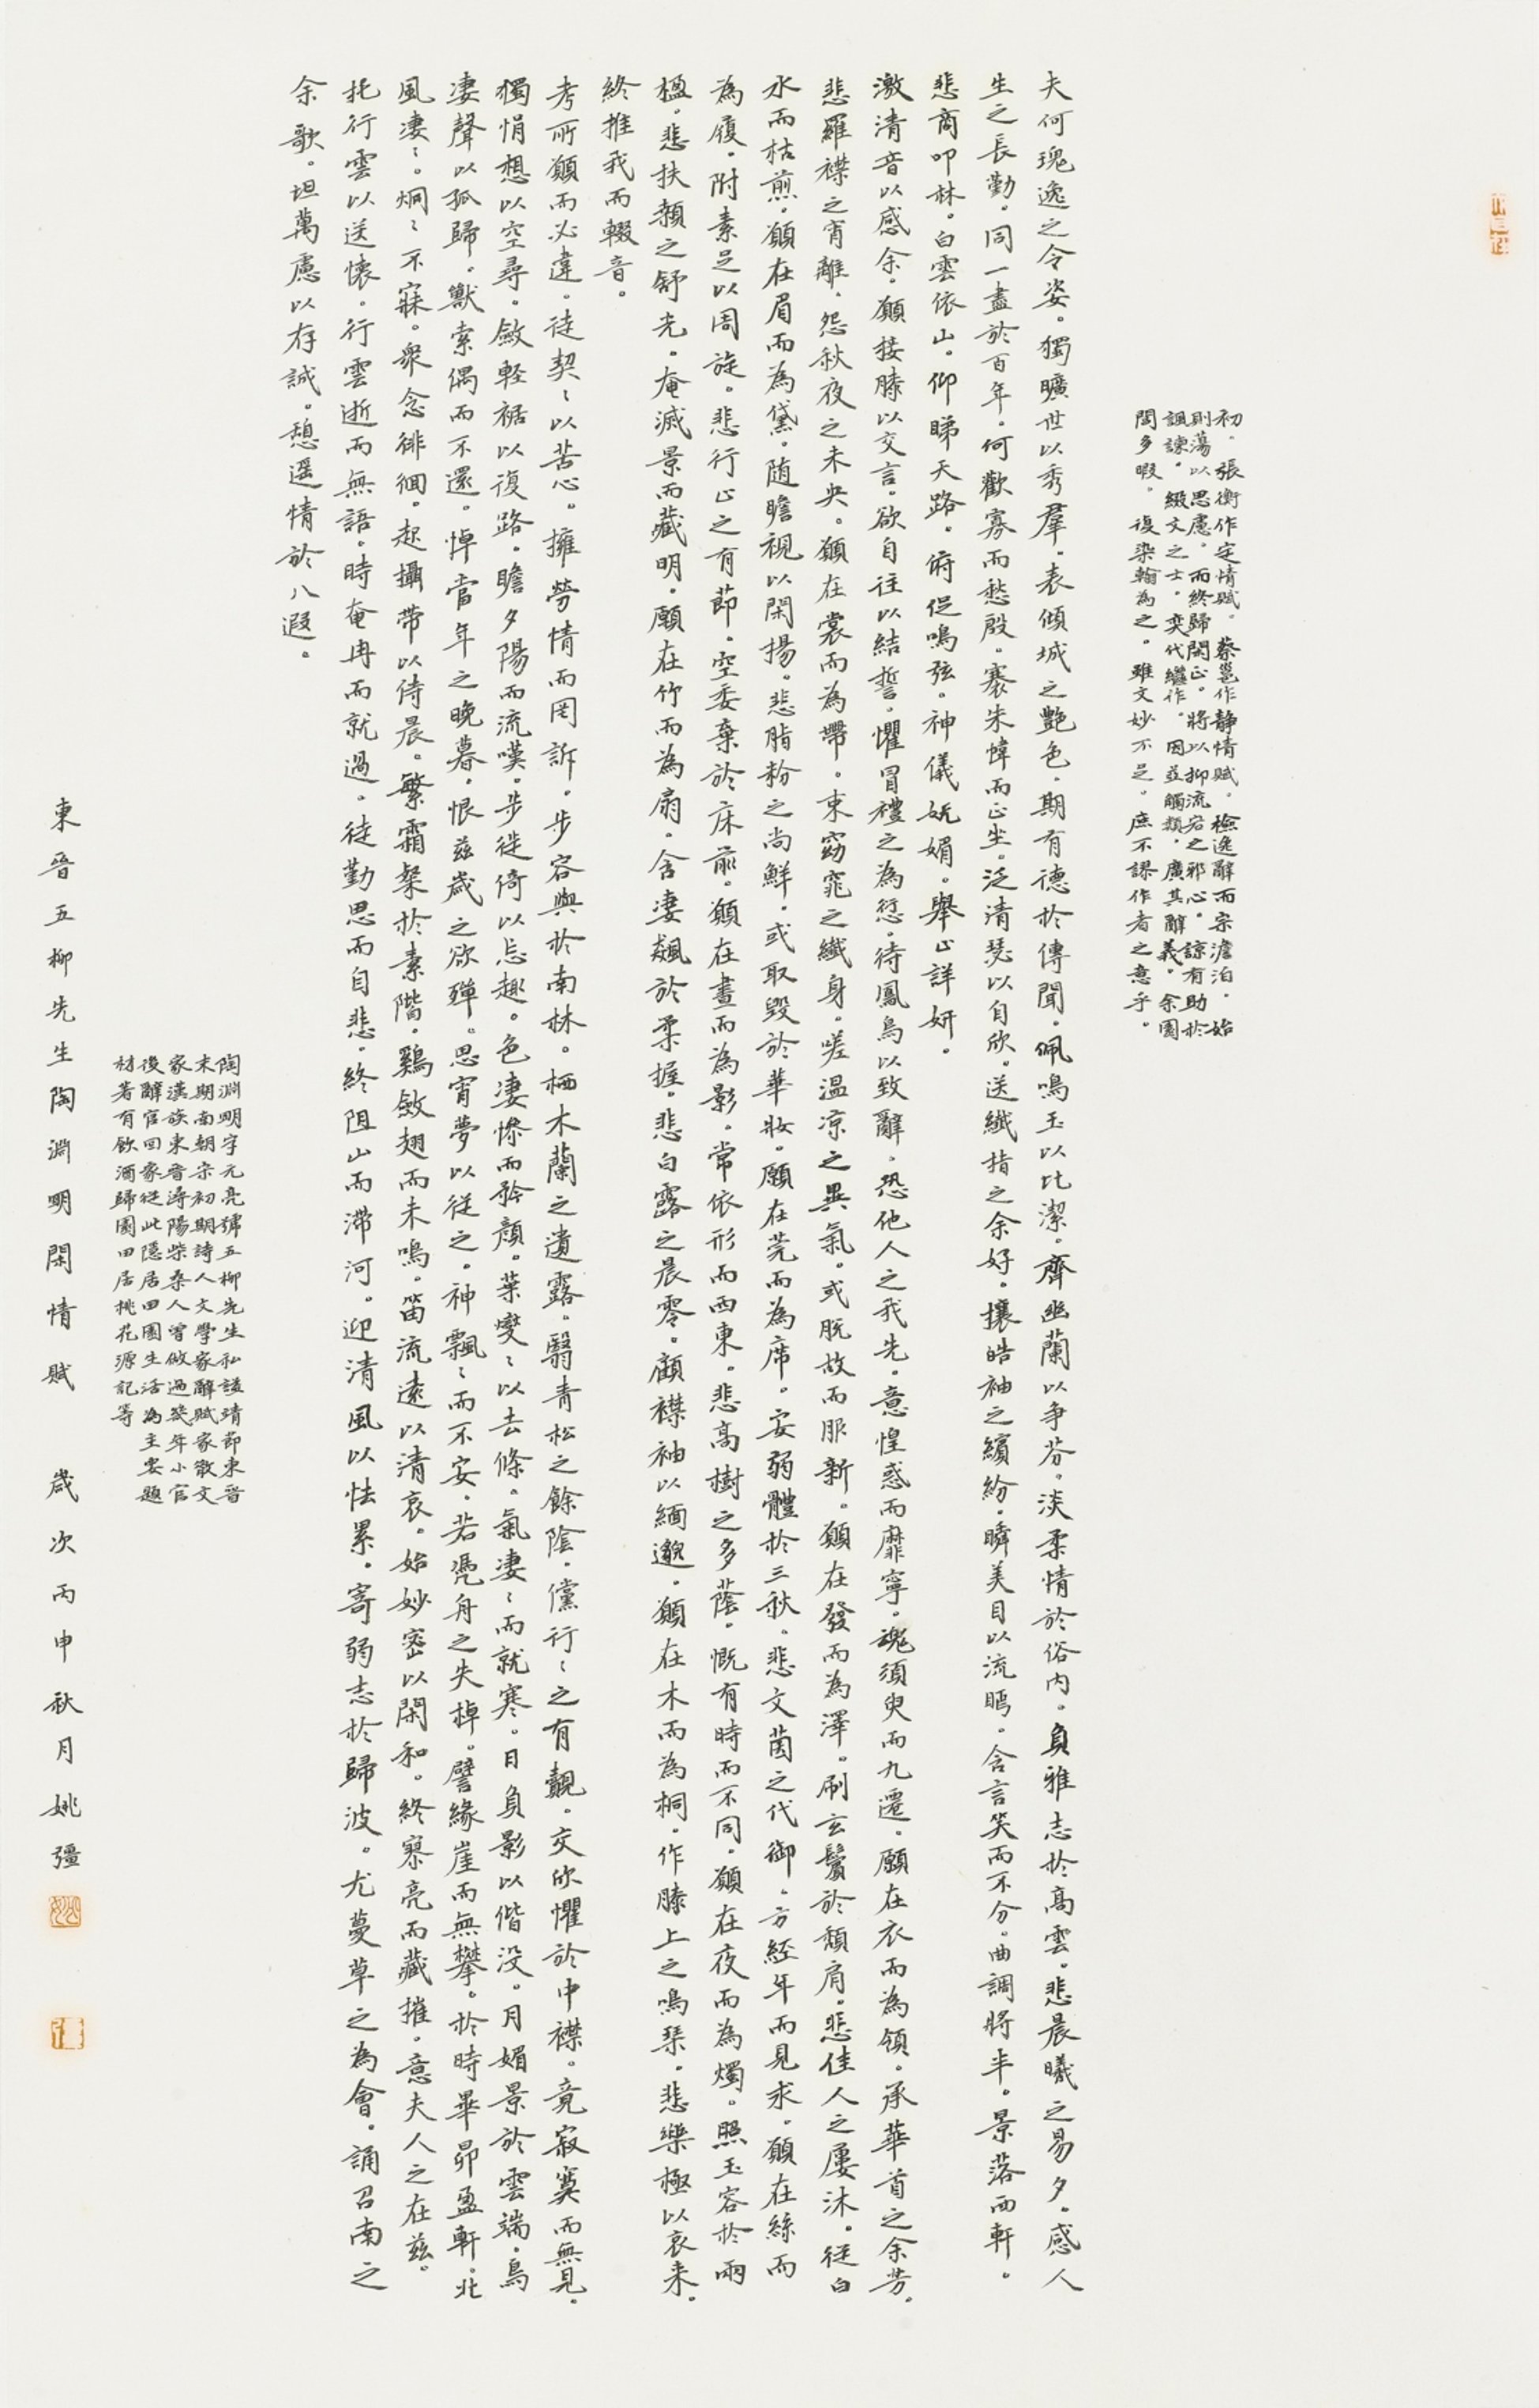 初。張衡作定情賦。蔡邕作靜情賦。檢逸辭而宗澹泊。始
則蕩以思慮。而終歸閑正。將以抑流宕之邪心。諒有助於
諷諫。綴文之士。奕代繼作。因並觸類。廣其辭義。余園
閭多暇。復染翰為之。雖文妙不足。庶不謬作者之意乎。
夫何瑰逸之令姿。獨曠世以秀羣。表傾城之艷色。期有德於傳聞。佩鳴玉以比潔。齊幽蘭以争芬。淡柔情於俗内。負雅志於高雲。悲晨曦之易夕。感人
生之長勤。同一盡於百年。何歡寡而愁殷。褰朱幃而正坐。泛清瑟以自欣。送纖指之余好。攘皓袖之繽紛。瞬美目以流眄。含言笑而不分。曲調將半。景落西軒。
悲商叩林。白雲依山。仰睇天路。俯促鳴弦。神儀妩媚。舉止詳妍。
激清音以感余。願接膝以交言。欲自往以結誓。懼冒禮之為愆。待鳳鳥以致辭。恐他人之我先。意惶惑而靡寧。魂須臾而九遷。願在衣而為領。承華首之余芳。
悲羅襟之宵離。怨秋夜之未央。願在裳而為帶。束窈窕之纖身。嗟温凉之異氣。或脱故而服新。願在發而為澤。刷玄鬢於頹肩。悲佳人之屢沐。從白
水而枯煎。願在眉而為黛。随瞻視以閑揚。悲脂粉之尚鮮。或取毀於華妝。願在莞而為席。安弱體於三秋。悲文茵之代御。方經年而見求。願在絲而
為履。附素足以周旋。悲行止之有節。空委棄於床前。願在晝而為影。常依形而西東。悲高樹之多蔭。慨有時而不同。願在夜而為燭。照玉容於兩
楹。悲扶顏之舒光。奄滅景而藏明。願在竹而為扇。含凄飆於柔握。悲白露之晨零。顧襟袖以緬邈。願在木而為桐。作膝上之鳴琴。悲樂極以哀来。
終推我而輟音。
考所願而必違。徒契〻以苦心。擁勞情而罔訴。步容與於南林。栖木蘭之遺露。翳青松之餘陰。儻行〻之有覿。交欣懼於中襟。竟寂寞而無見。
獨悁想以空尋。斂軽裾以復路。瞻夕陽而流嘆。步徙倚以忘趣。色凄慘而矜顏。葉燮〻以去條。氣凄〻而就寒。日負影以偕没。月媚景於雲端。鳥
凄聲以孤歸。獸索偶而不還。悼當年之晚暮。恨兹歲之欲殫。思宵夢以從之。神飄〻而不安。若憑舟之失棹。譬緣崖而無攀。於時畢昴盈軒。北
風凄〻。炯〻不寐。衆念徘徊。起攝帶以侍晨。繁霜粲於素階。鷄斂翅而未鳴。笛流遠以清哀。始妙密以閑和。終寥亮而藏摧。意夫人之在兹。
托行雲以送懷。行雲逝而無語。時奄冉而就過。徒勤思而自悲。終阻山而滞河。迎清風以怯累。寄弱志於歸波。尤蔓草之為會。誦召南之
余歌。坦萬慮以存誠。憩遥情於八遐。
陶淵明字元亮號五柳先生私謚靖節東晋
末期南朝宋初期詩人文學家辭賦家散文
家漢族東晋潯陽柴桑人曾做過幾年小官
後辭官回家從此隱居田園生活為主要題
材著有飲酒歸園田居桃花源記等
東晋五柳先生陶淵明閑情賦 歲次丙申秋月姚彊